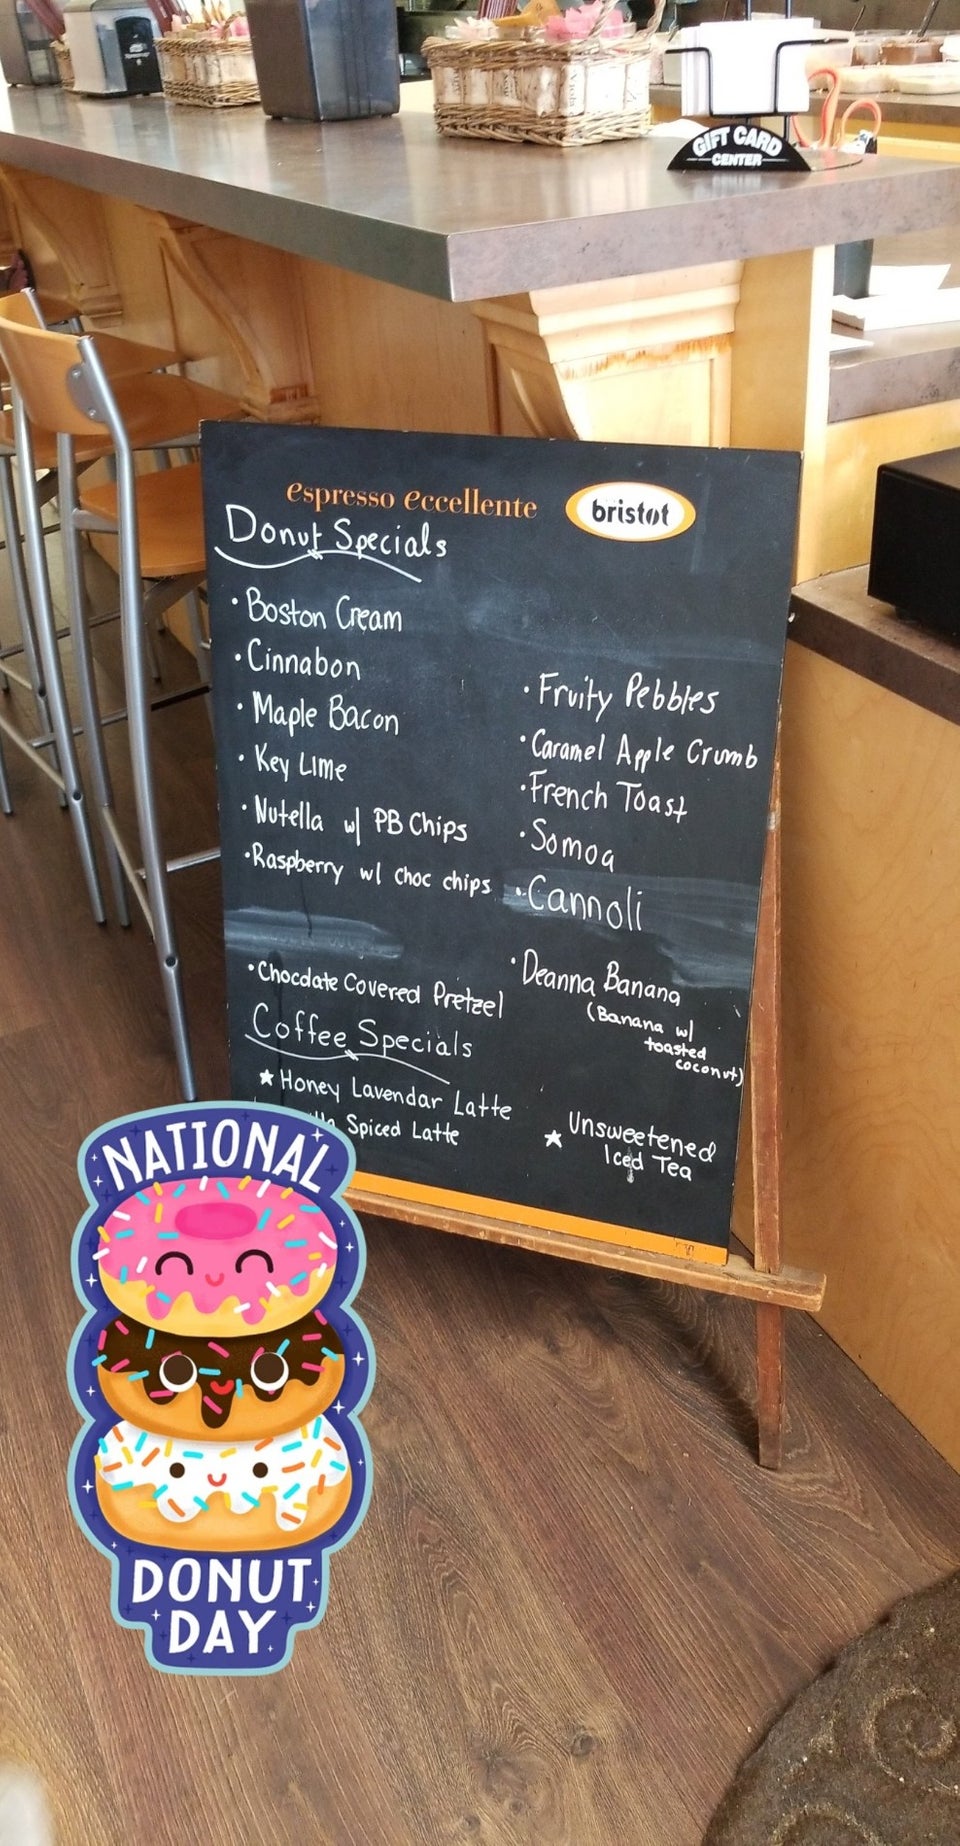 GIFT CARD
CENTER
espresso eccellente
bristot
Donut Specials
• Boston Cream
• Cinnabon
• Maple Bacon
• Key Lime
• Nutella w/ PB Chips
• Raspberry w/ choc chips
• Chocolate Covered Pretzel
• Fruity Pebbles
• Caramel Apple Crumb
• French Toast
• Somoa
• Cannoli
• Deanna Banana
(Banana w/
toasted
coconut)
Coffee Specials
★ Honey Lavendar Latte
Spiced Latte
★ Unsweetened
Iced Tea
NATIONAL
DONUT
DAY